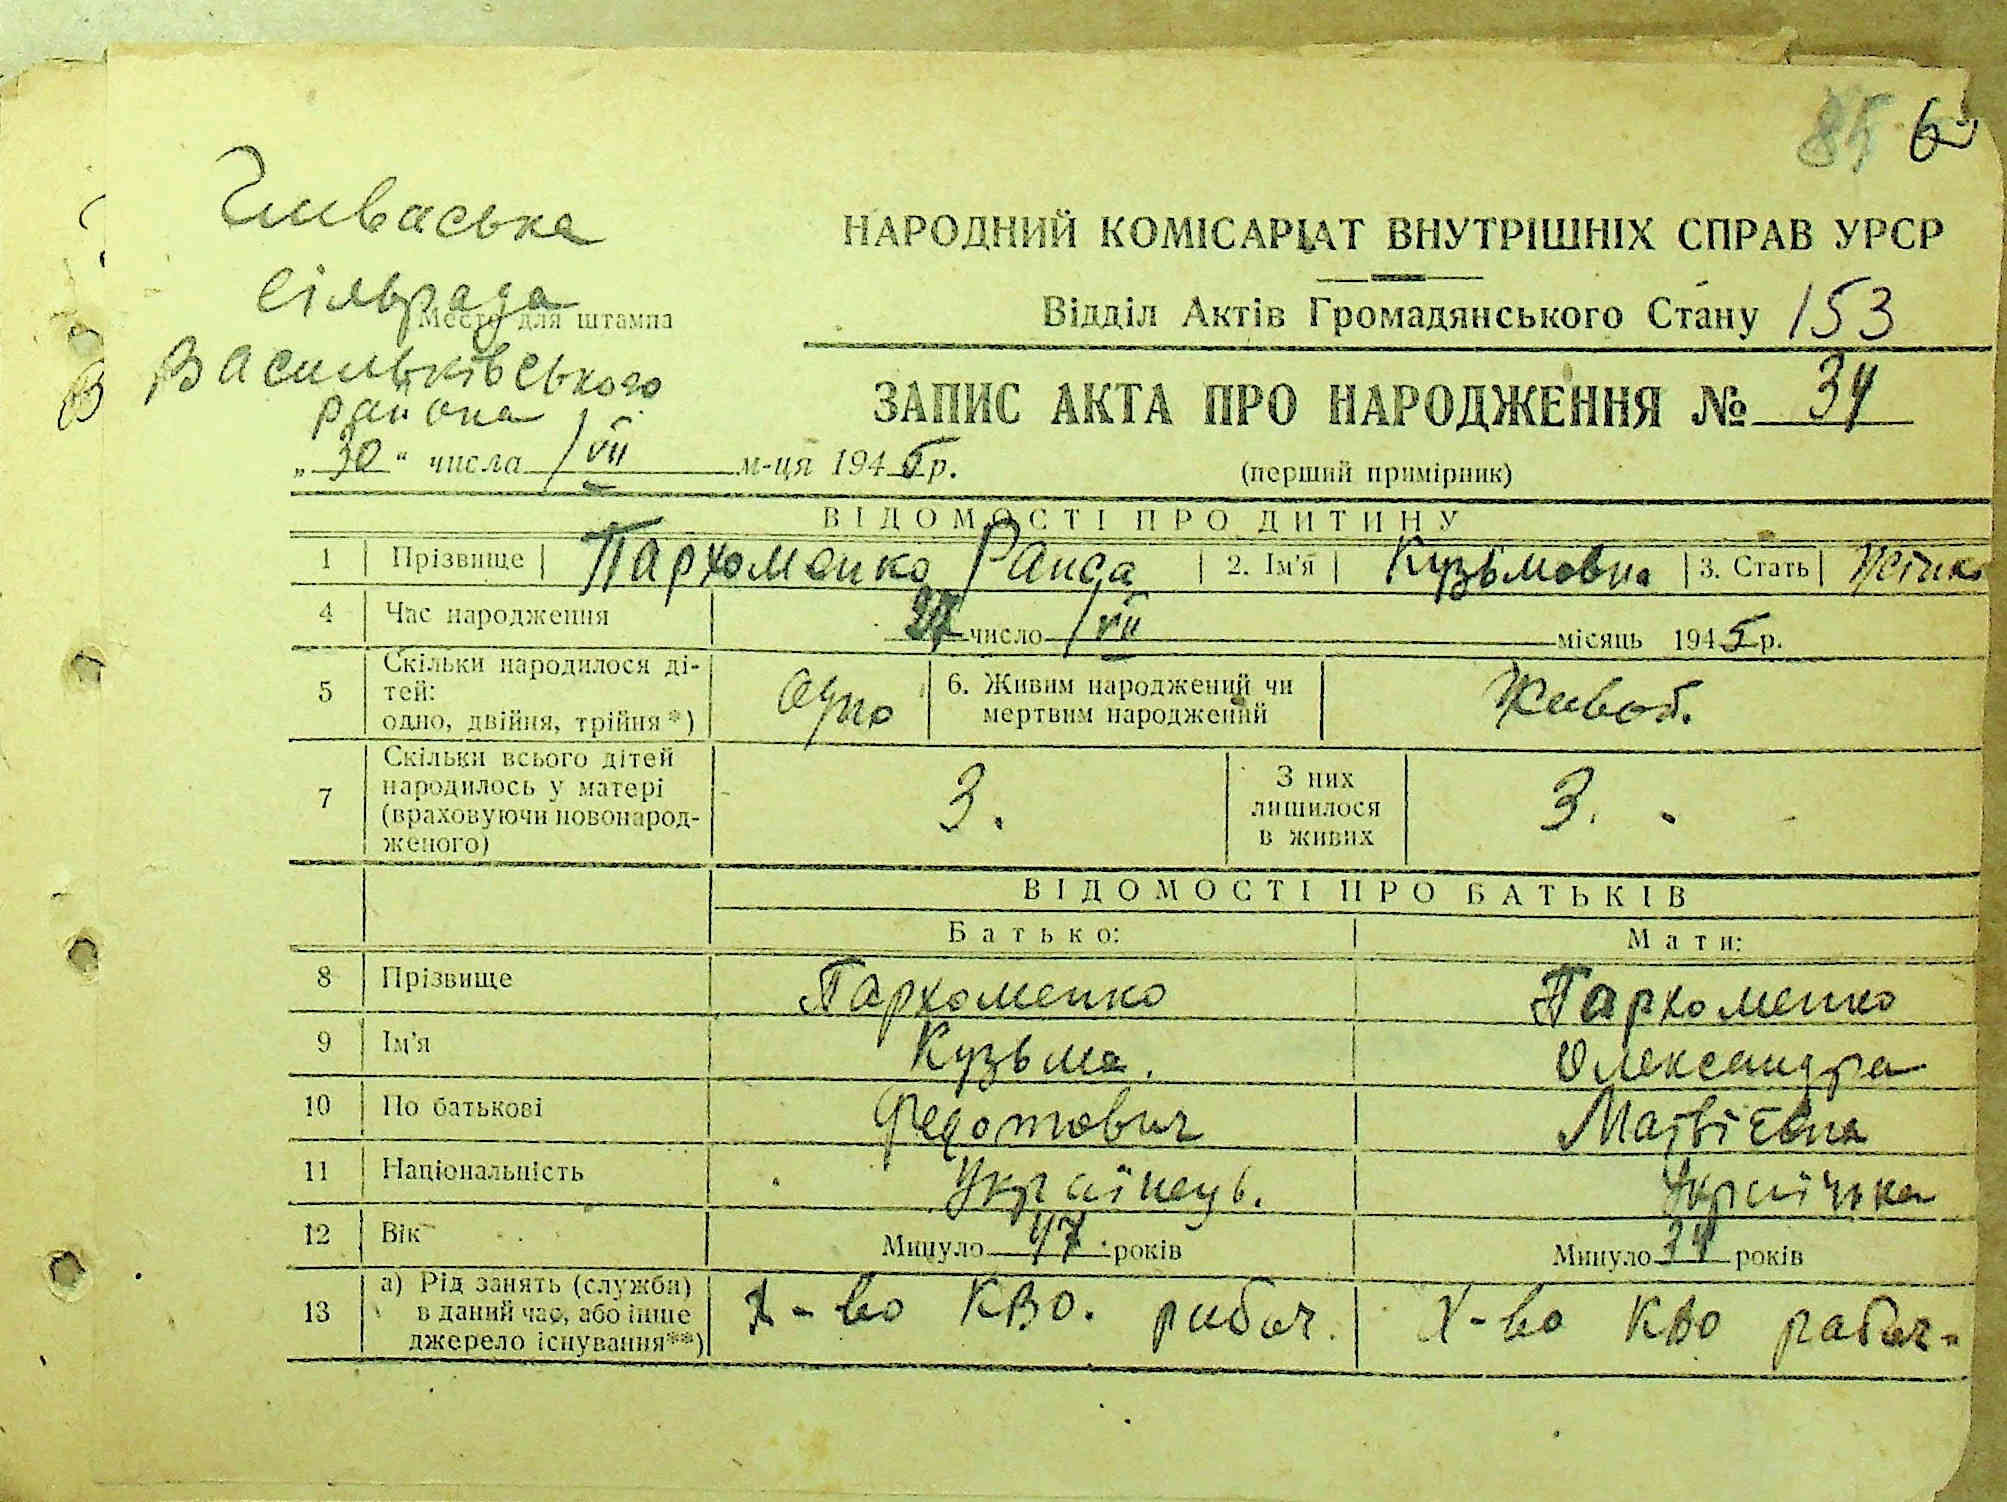 85 6
сільрада
Место для штампа
Васильківського
района
НАРОДНИЙ КОМІСАРІАТ ВНУТРІШНІХ СПРАВ УРСР
Відділ Актів Громадянського Стану 153
ЗАПИС АКТА ПРО НАРОДЖЕННЯ № 34
(перший примірник)
„30“ числа VII м-ця 1945 р.
ВІДОМОСТІ ПРО ДИТИНУ
1 Прізвище Пархоменко Раиса 2. Ім'я Кузьмовна 3. Стать
4 Час народження число VII місяць 1945 р.
5 Скільки народилося ді-
тей:
одно, двійня, трійня*) одно 6. Живим народжений чи
мертвим народжений
7 Скільки всього дітей
народилось у матері
(враховуючи новонарод-
женого) 3. З них
лишилося
в живих 3.
ВІДОМОСТІ ПРО БАТЬКІВ
Батько: Мати:
8 Прізвище Пархоменко Пархоменко
9 Ім'я Кузьма. Олександра
10 По батькові Федотович Матвіевна
11 Національність Українець. Українка
12 Вік Минуло 47 років Минуло 34 років
13 а) Рід занять (служби)
в даний час, або інше
джерело існування**) Х-во КВО. рибач. Х-во КВО рабач-